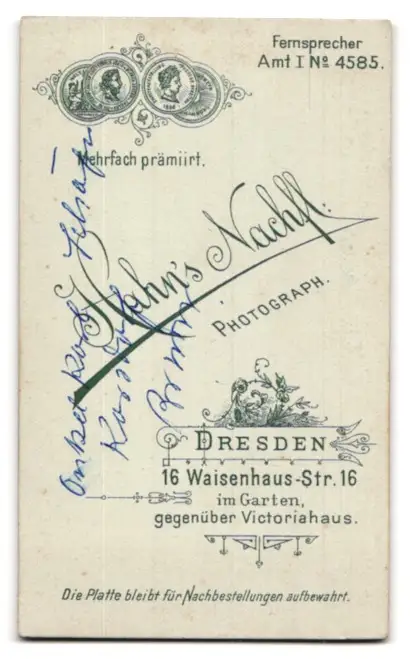 Fernsprecher
Amt I Nº 4585.
Mehrfach prämiirt.
Hahn's Nachfl.
PHOTOGRAPH.
Onkel Karl
DRESDEN
16 Waisenhaus-Str. 16
im Garten,
gegenüber Victoriahaus.
Die Platte bleibt für Nachbestellungen aufbewahrt.